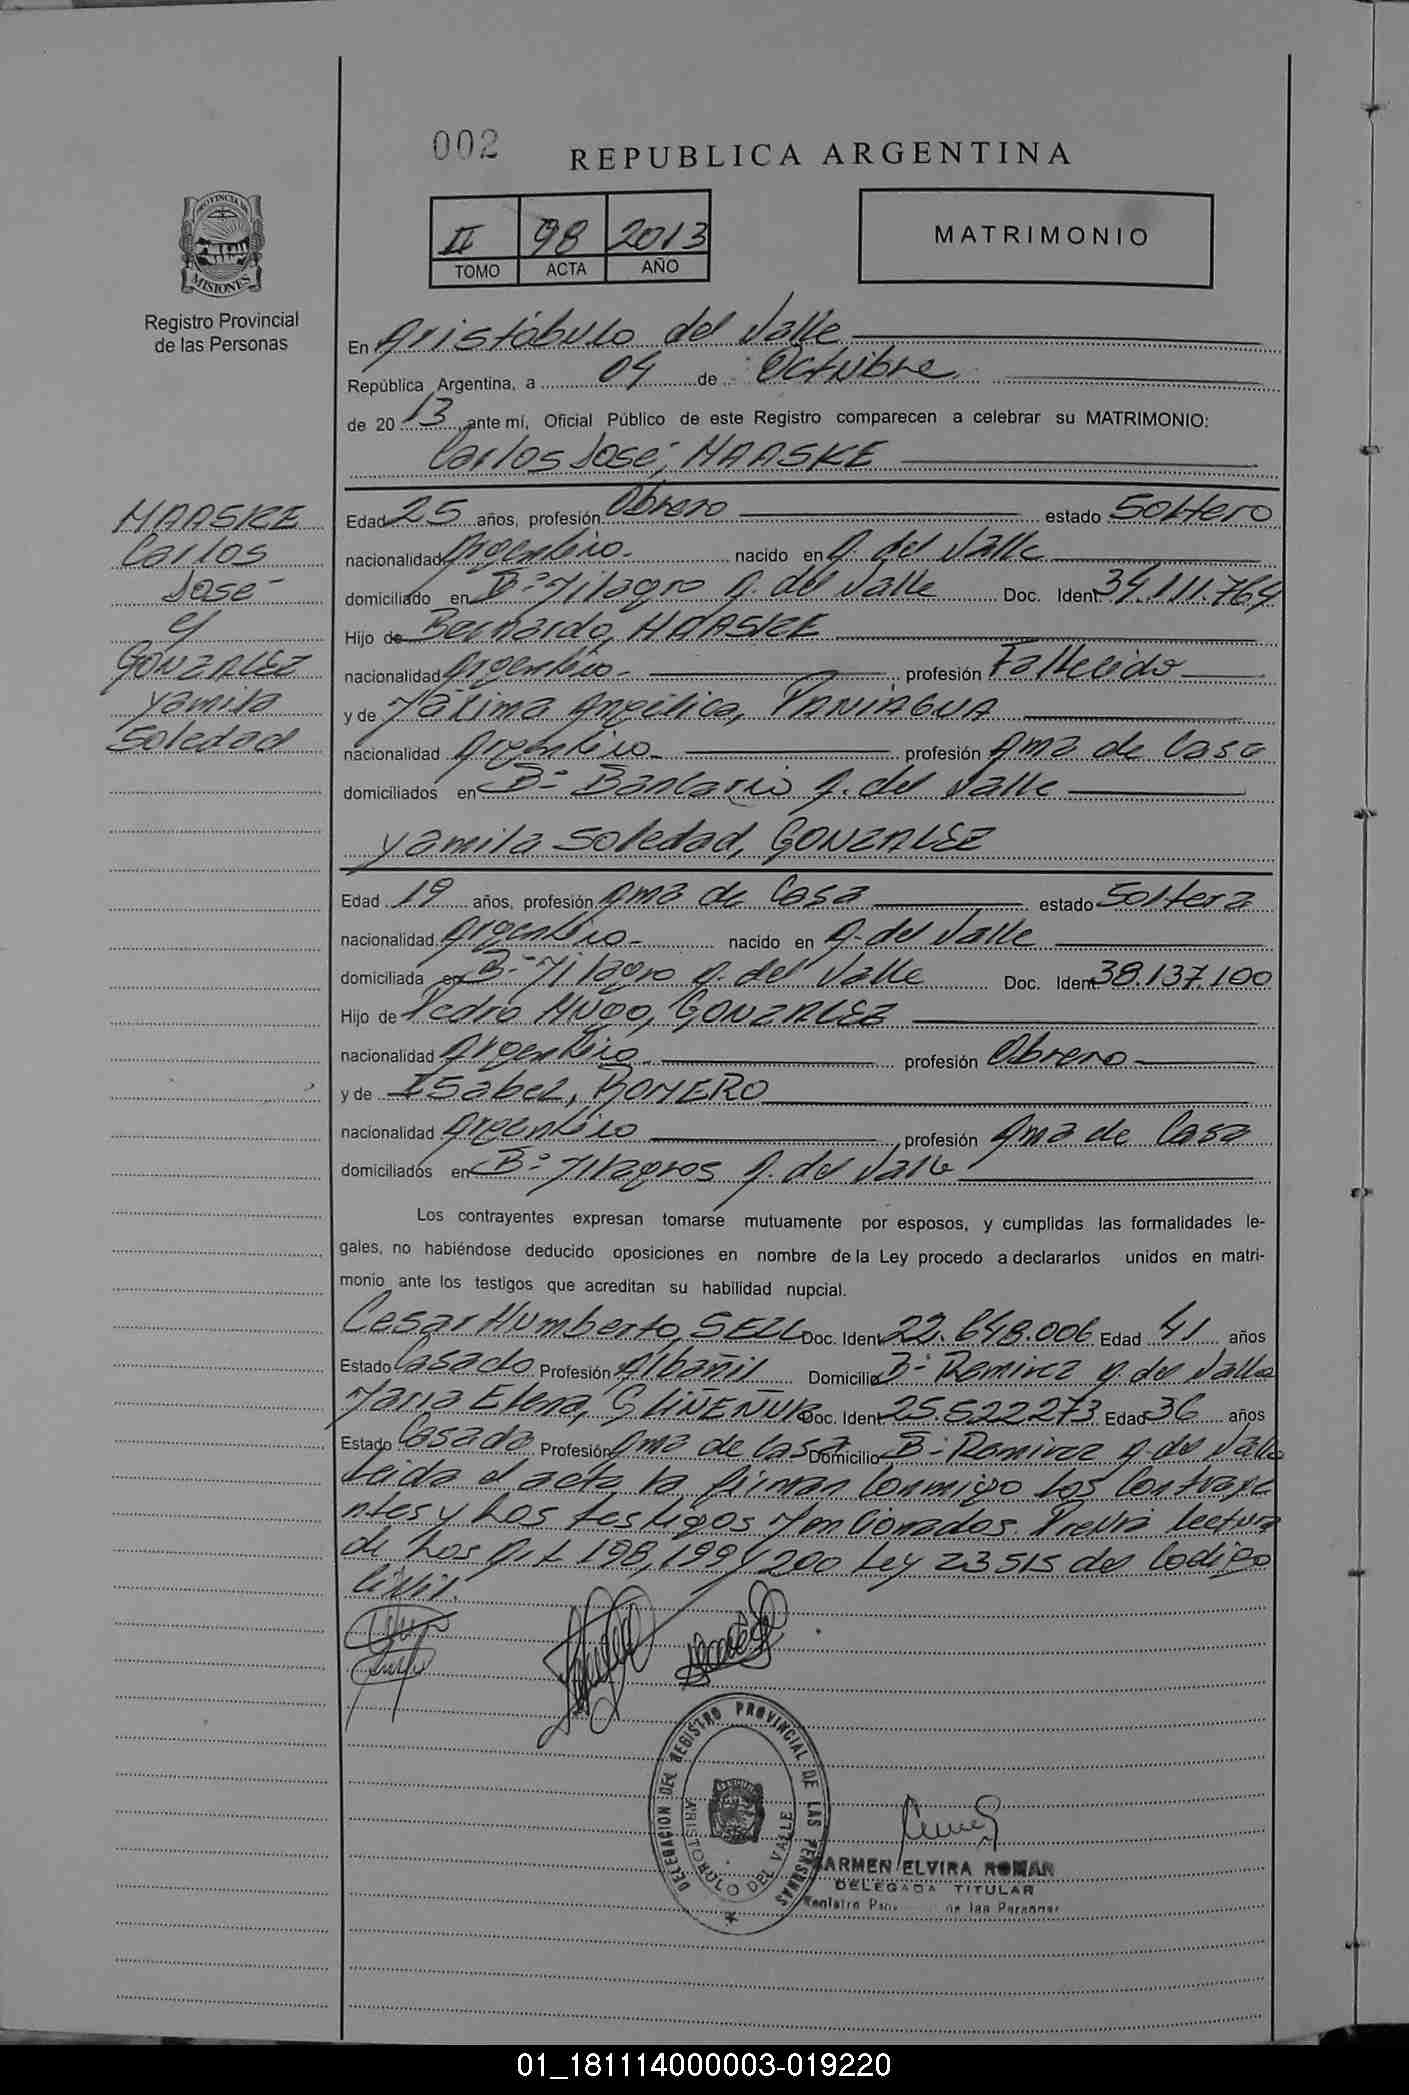 002
REPUBLICA ARGENTINA
II 98 2013
TOMO ACTA AÑO
MATRIMONIO
PROVINCIA DE
MISIONES
Registro Provincial
de las Personas
En Aristóbulo del Valle
República Argentina, a 04 de Octubre
de 20 13, ante mí, Oficial Público de este Registro comparecen a celebrar su MATRIMONIO:
Carlos José, MAASKE
MAASKE
Carlos
José
y
GONZALEZ
Yamila
Soledad
Edad 25 años, profesión Obrero estado Soltero
nacionalidad Argentino nacido en A. del Valle
domiciliado en B° Milagro A. del Valle Doc. Ident. 34.111.764
Hijo de Bernardo, MAASKE
nacionalidad Argentino profesión Fallecido
y de Máxima Angélica, PANIAGUA
nacionalidad Argentino profesión Ama de Casa
domiciliados en B° Bancario A. del Valle
Yamila Soledad, GONZALEZ
Edad 19 años, profesión Ama de Casa estado Soltera
nacionalidad Argentino nacido en A. del Valle
domiciliada en B° Milagro A. del Valle Doc. Ident. 38.137.100
Hijo de Pedro Hugo, GONZALEZ
nacionalidad Argentino profesión Obrero
y de Isabel, ROMERO
nacionalidad Argentino profesión Ama de Casa
domiciliados en B° Milagros A. del Valle
Los contrayentes expresan tomarse mutuamente por esposos, y cumplidas las formalidades le-
gales, no habiéndose deducido oposiciones en nombre de la Ley procedo a declararlos unidos en matri-
monio ante los testigos que acreditan su habilidad nupcial.
Cesar Humberto, SELL Doc. Ident. 22.648.006 Edad 41 años
Estado Casado Profesión Albañil Domicilio B° Ramirez A. del Valle
Maria Elena, Doc. Ident. 25.522273 Edad 36 años
Estado Casada Profesión Ama de Casa Domicilio B° Ramirez A. del Valle
Leida el acta la firman Conmigo Los Contraye
ntes y Los testigos Mencionados. Previa lectura
de Los Art 198, 199 y 200 Ley 23515 del Codigo
Civil.
DELEGACION DEL REGISTRO PROVINCIAL DE LAS PERSONAS
ARISTOBULO DEL VALLE
CARMEN ELVIRA ROMAN
DELEGADA TITULAR
Registro de las Personas
01_181114000003-019220